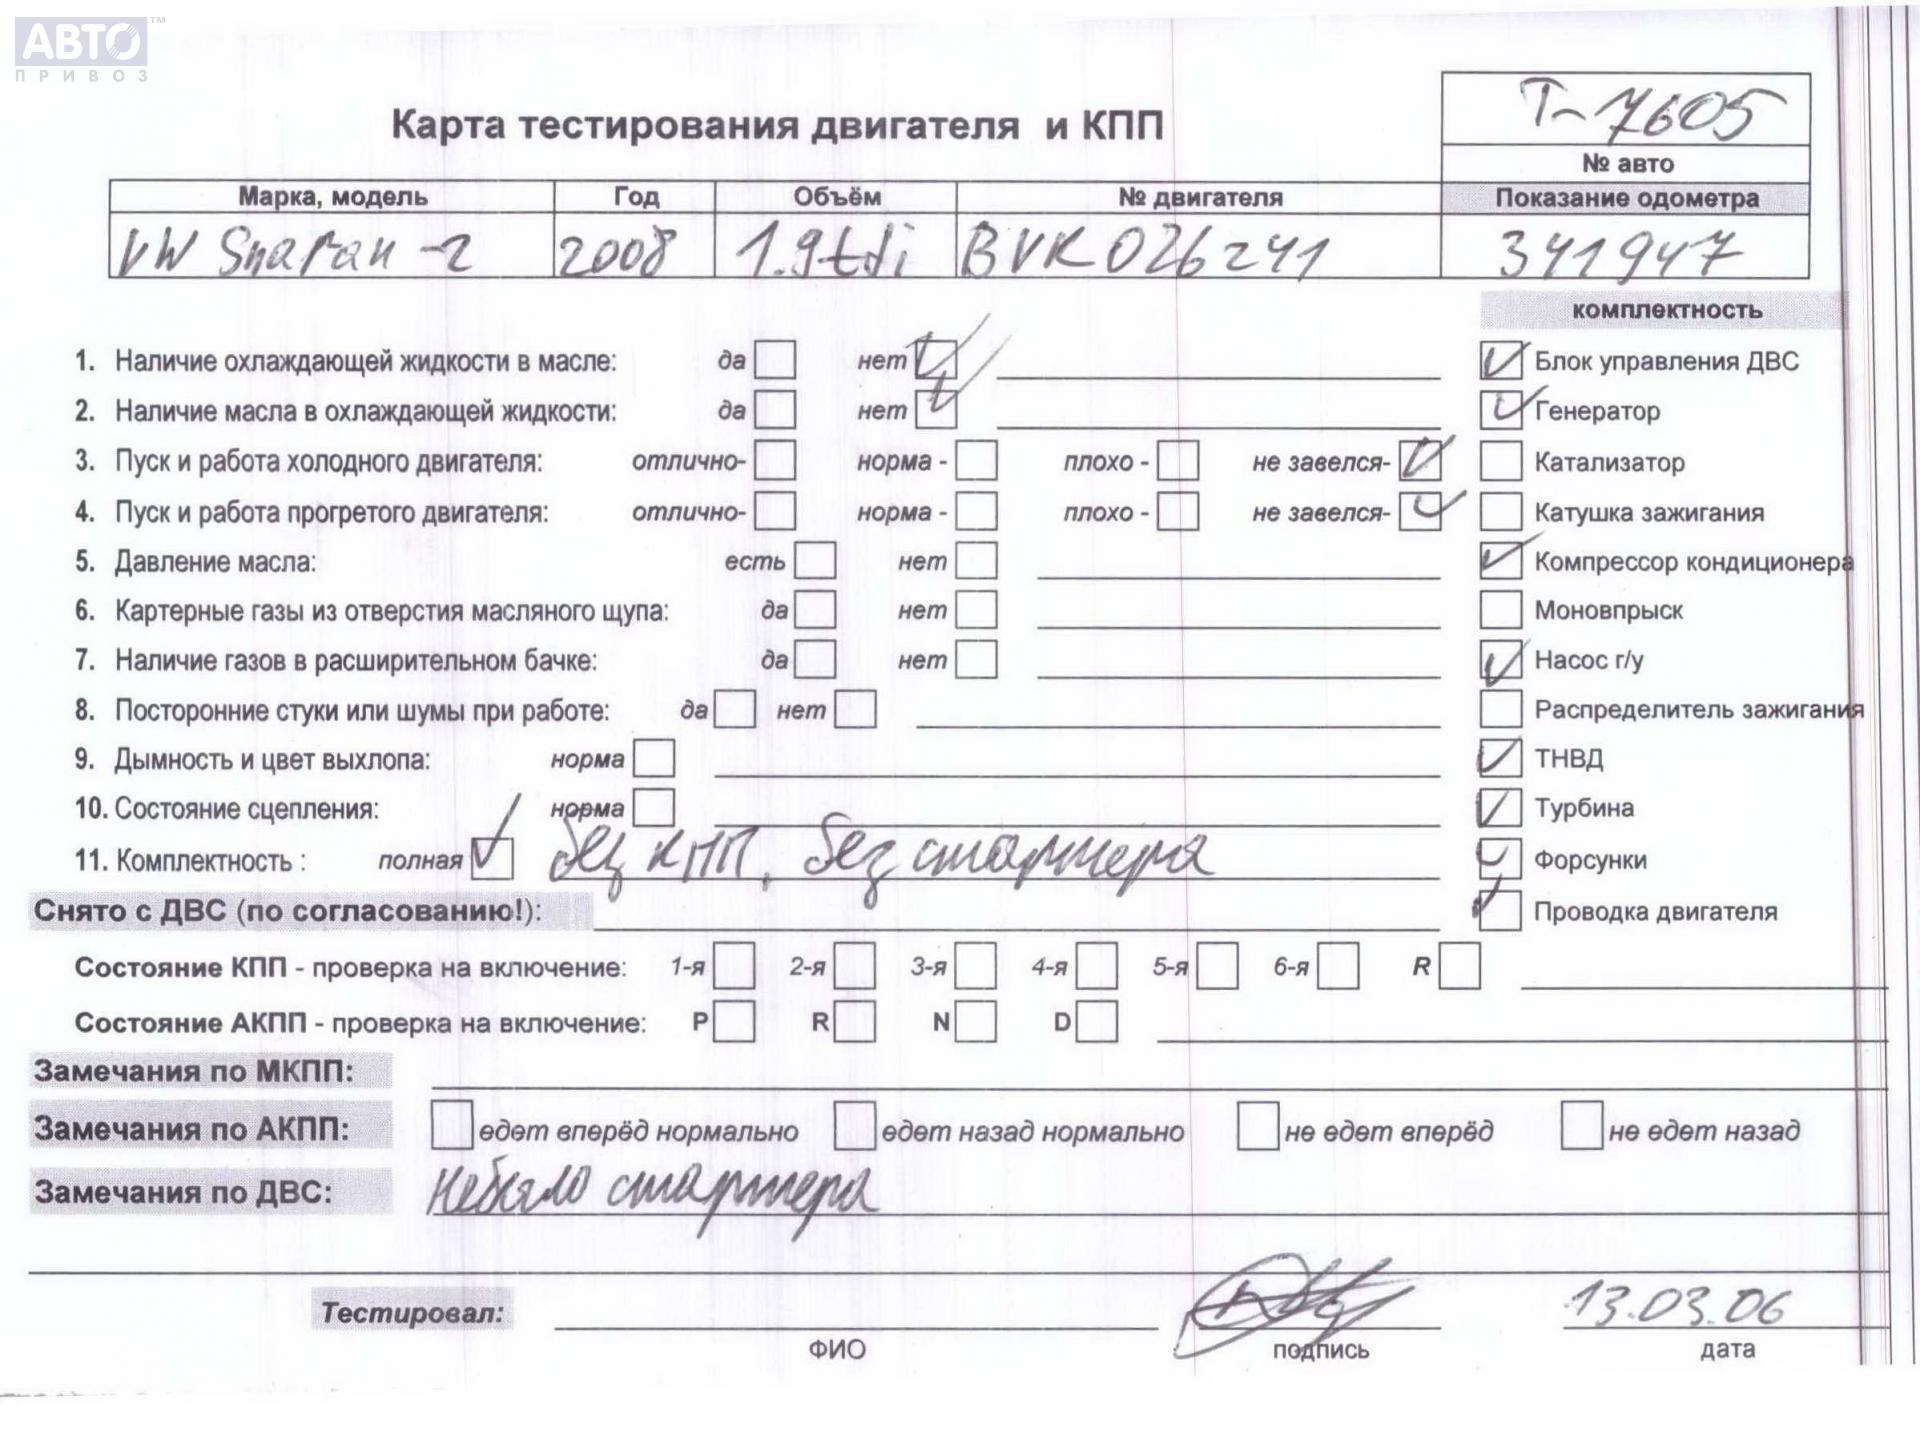 АВТО™
ПРИВОЗ
Карта тестирования двигателя и КПП
Т-7605
№ авто
Марка, модель Год Объём № двигателя Показание одометра
VW Sharan-2 2008 1.9tdi BVK026241 341947
комплектность
1. Наличие охлаждающей жидкости в масле: да нет Блок управления ДВС
2. Наличие масла в охлаждающей жидкости: да нет Генератор
3. Пуск и работа холодного двигателя: отлично- норма - плохо - не завелся- Катализатор
4. Пуск и работа прогретого двигателя: отлично- норма - плохо - не завелся- Катушка зажигания
5. Давление масла: есть нет Компрессор кондиционера
6. Картерные газы из отверстия масляного щупа: да нет Моновпрыск
7. Наличие газов в расширительном бачке: да нет Насос г/у
8. Посторонние стуки или шумы при работе: да нет Распределитель зажигания
9. Дымность и цвет выхлопа: норма ТНВД
10. Состояние сцепления: норма Турбина
11. Комплектность : полная без КПП, без стартера Форсунки
Снято с ДВС (по согласованию!): Проводка двигателя
Состояние КПП - проверка на включение: 1-я 2-я 3-я 4-я 5-я 6-я R
Состояние АКПП - проверка на включение: P R N D
Замечания по МКПП:
Замечания по АКПП: едет вперёд нормально едет назад нормально не едет вперёд не едет назад
Замечания по ДВС: небыло стартера
Тестировал: 13.03.06
ФИО подпись дата